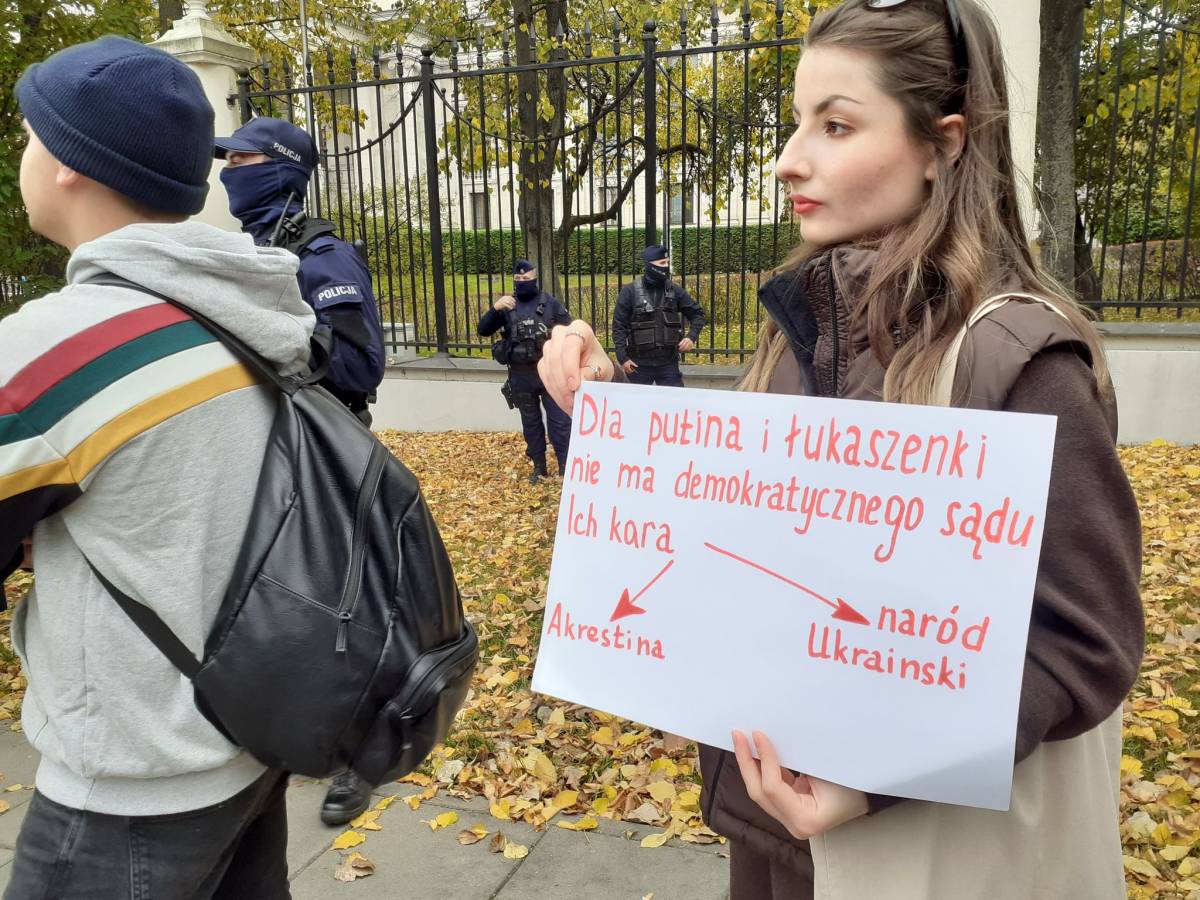 POLICJA
POLICJA
Dla putina i łukaszenki
nie ma demokratycznego sądu
Ich kara
Akrestina
naród
Ukrainski